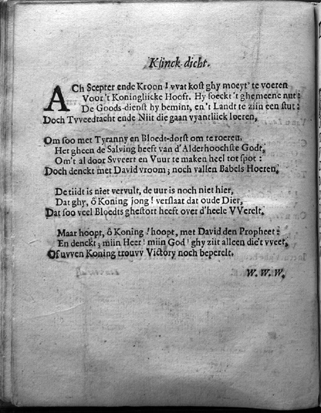 Klinck dicht.
ACh Scepter ende Kroon! wat kost ghy moeyt' te voeren
Voor't Koninglijcke Hooft. Hy soeckt 't ghemeene nut:
De Goods-dienst hy bemint, en't Landt te zijn een stut:
Doch Tvveedracht ende Nijt die gaan vyantlijck loeren,
Om soo met Tyranny en Bloedt-dorst om te roeren.
Het gheen de Salving heeft van d'Alderhoochste Godt,
Om't al door Svveert en Vuur te maken heel tot spot:
Doch denckt met David vroom; noch vallen Babels Hoeren,
De tijdt is niet vervult, de uur is noch niet hier,
Dat ghy, ô Koning jong! verslaat dat oude Dier,
Dat soo veel Bloedts ghestort heeft over d'heele VVerelt,
Maar hoopt, ô Koning! hoopt, met David den Propheet:
En denckt, mijn Heer! mijn God! ghy zijt alleen die't vveet,
Of uvven Koning trouvv Victory noch beperelt.
W. W. W.